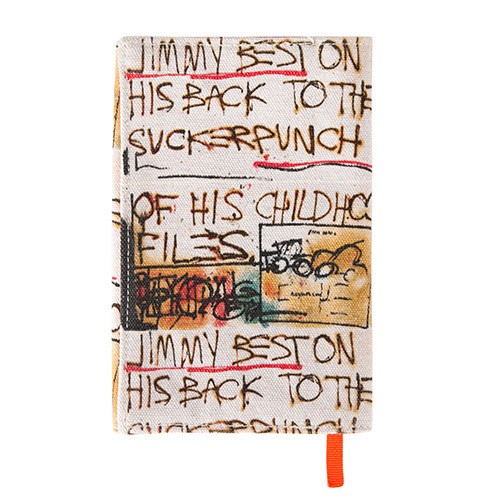 JIMMY BEST ON
HIS BACK TO THE
SUCKERPUNCH
OF HIS CHILDHOO
FILES
JIMMY BEST ON
HIS BACK TO THE
SUCKERPUNCH